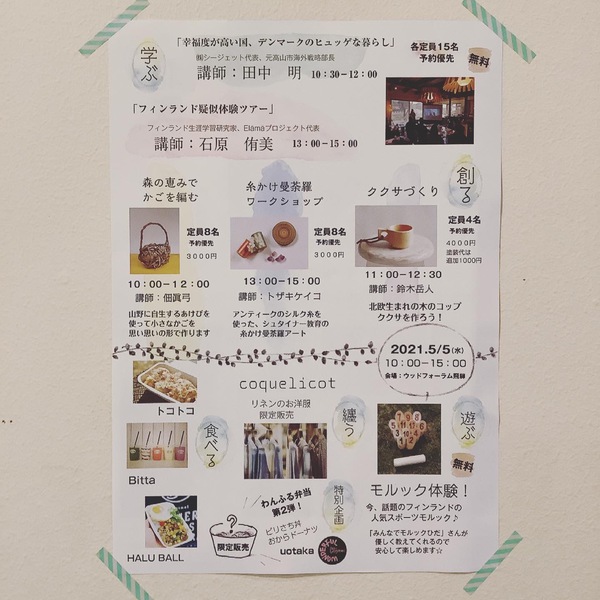 学ぶ
「幸福度が高い国、デンマークのヒュッゲな暮らし」
㈱シージェット代表、元高山市海外戦略部長
講師：田中　明 10：30－12：00
各定員15名
予約優先
無料
「フィンランド疑似体験ツアー」
フィンランド生涯学習研究家、Elämäプロジェクト代表
講師：石原　侑美 13：00－15：00
創る
森の恵みで
かごを編む
定員8名
予約優先
3000円
10：00－12：00
講師：佃眞弓
山野に自生するあけびを
使って小さなかごを
思い思いの形で作ります
糸かけ曼荼羅
ワークショップ
定員8名
予約優先
3000円
13：00－15：00
講師：トザキケイコ
アンティークのシルク糸を
使った、シュタイナー教育の
糸かけ曼荼羅アート
ククサづくり
定員4名
予約優先
4000円
塗装代は
追加1000円
11：00－12：30
講師：鈴木岳人
北欧生まれの木のコップ
ククサを作ろう！
2021.5/5(水)
10：00－15：00
会場：ウッドフォーラム飛騨
トコトコ
食べる
Bitta
HALU BALL
coquelicot
リネンのお洋服
限定販売
纏う
特別企画
わんふる弁当
第2弾！
ビリさち丼
おからドーナツ
限定販売
uotaka
WONDERFUL
遊ぶ
無料
モルック体験！
今、話題のフィンランドの
人気スポーツモルック♪
「みんなでモルックひだ」さんが
優しく教えてくれるので
安心して楽しめます☆